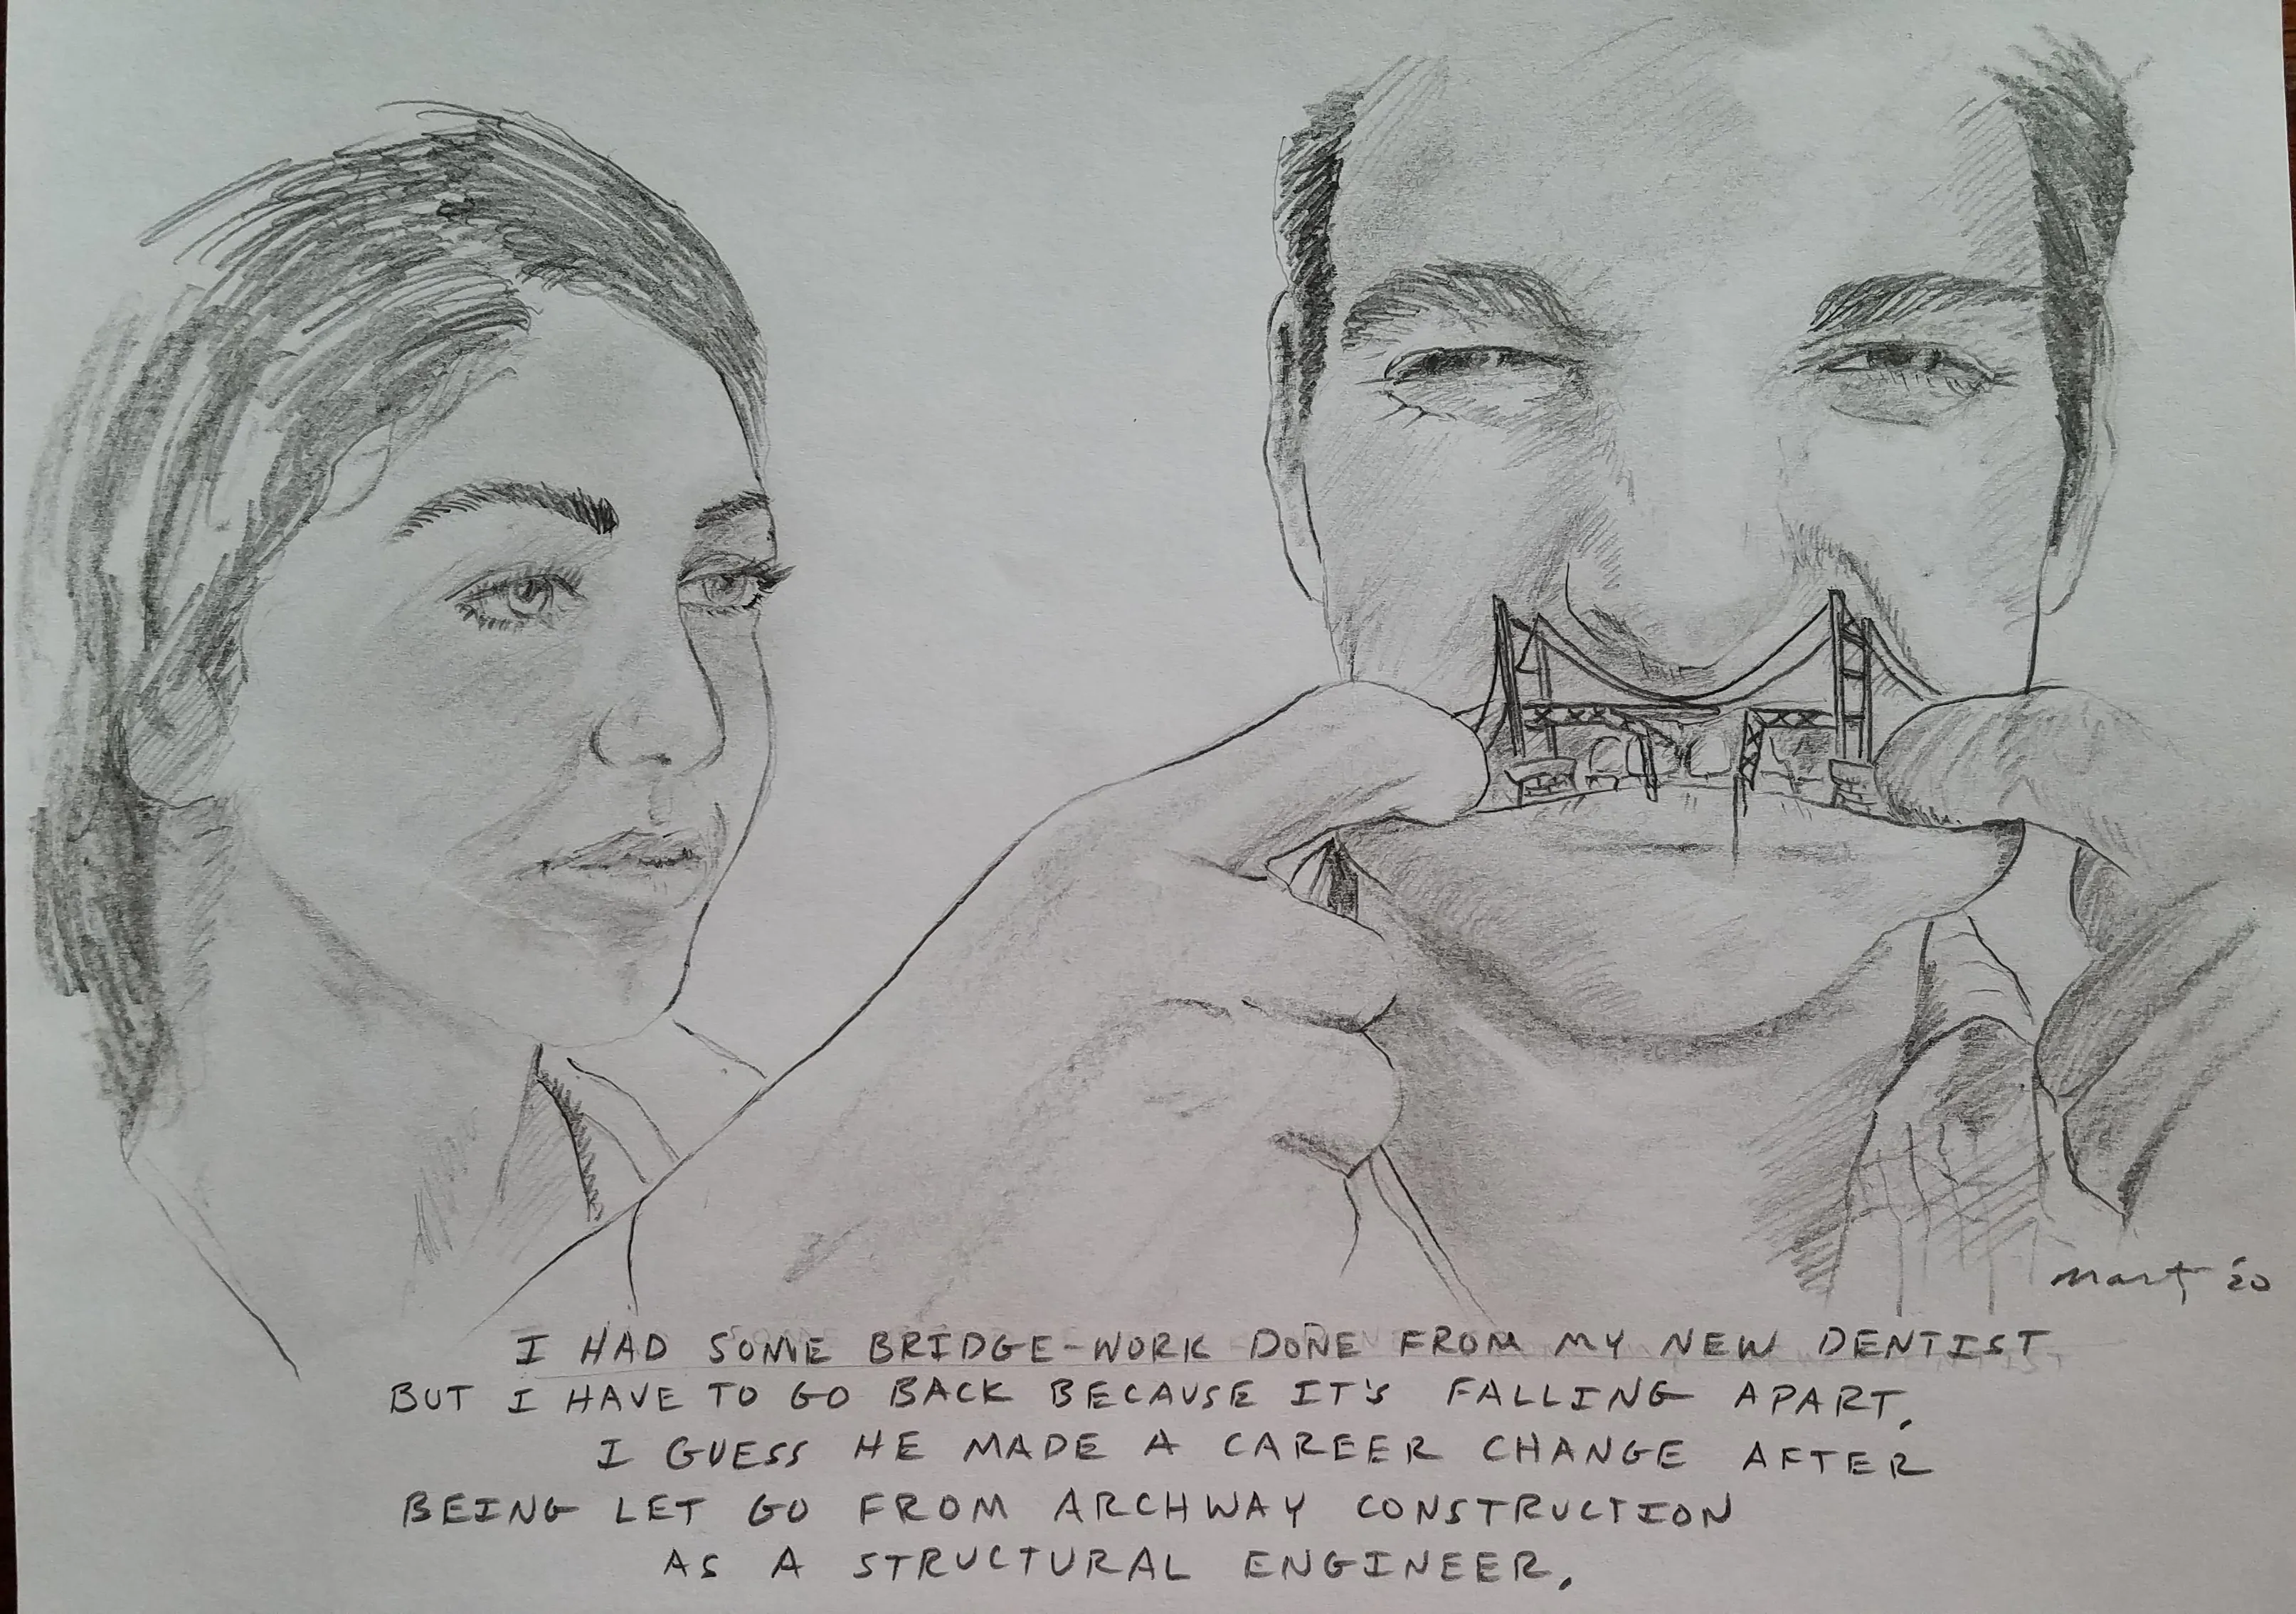 Marty '20
I HAD SOME BRIDGE-WORK DONE FROM MY NEW DENTIST
BUT I HAVE TO GO BACK BECAUSE IT'S FALLING APART.
I GUESS HE MADE A CAREER CHANGE AFTER
BEING LET GO FROM ARCHWAY CONSTRUCTION
AS A STRUCTURAL ENGINEER.